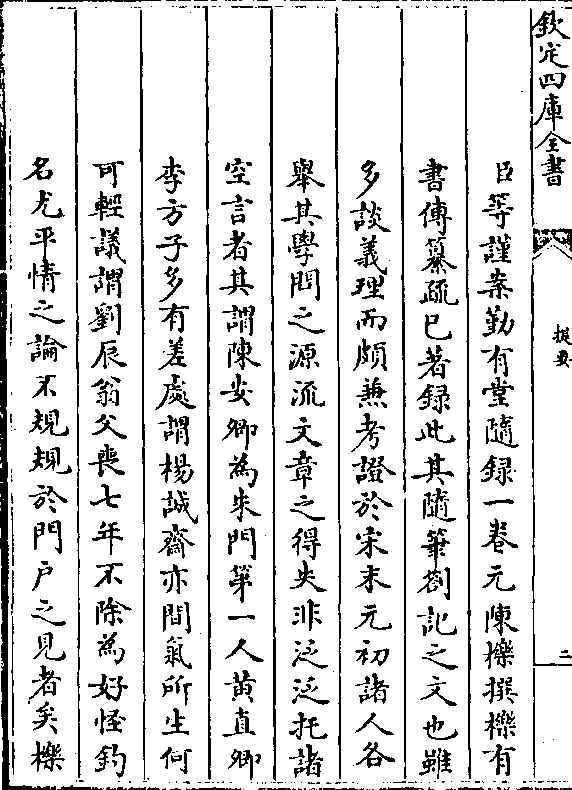 欽定四庫全書
提要
二
臣等謹案勤有堂隨録一卷元陳櫟撰櫟有
書傳纂疏已著録此其隨筆劄記之文也雖
多談義理而頗兼考證於宋末元初諸人各
舉其學問之源流文章之得失非泛泛托諸
空言者其謂陳安卿為朱門第一人黄直卿
李方子多有差處謂楊誠齋亦間氣所生何
可輕議謂劉辰翁父喪七年不除為好怪釣
名尤平情之論不規規於門户之見者矣櫟